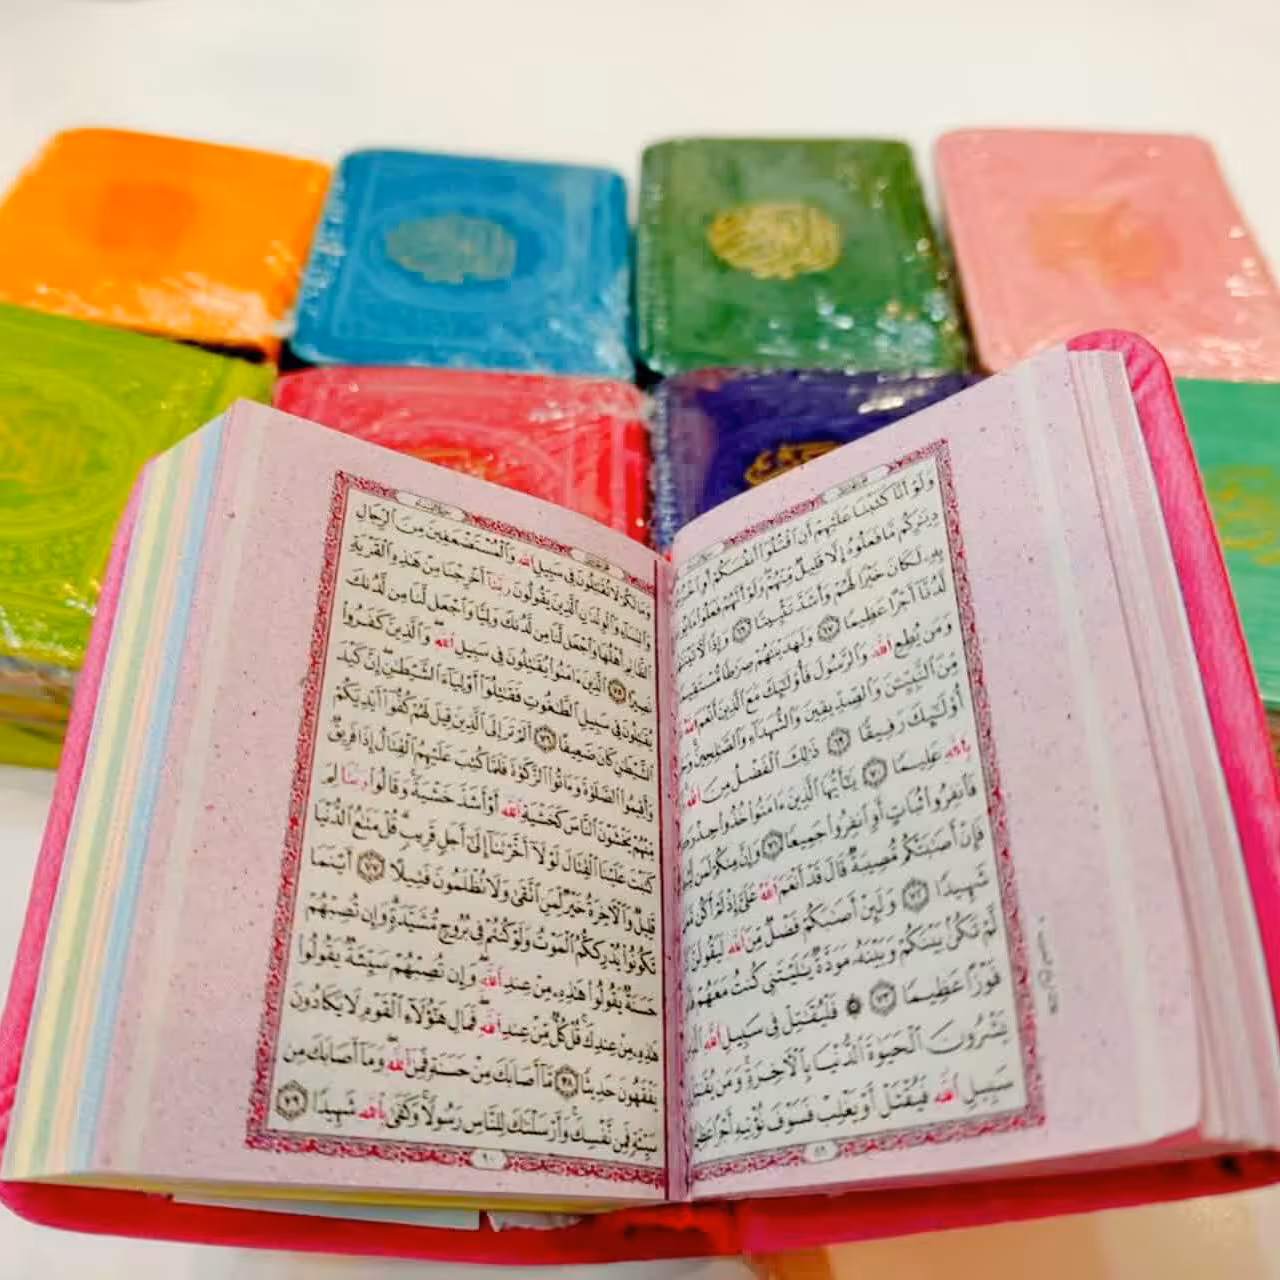 وَلَوْ أَنَّا كَتَبْنَا عَلَيْهِمْ أَنِ اقْتُلُوا أَنفُسَكُمْ أَوِ
دِيَارِكُم مَّا فَعَلُوهُ إِلَّا قَلِيلٌ مِّنْهُمْ وَلَوْ أَنَّهُمْ فَعَلُوا مَا
بِهِ لَكَانَ خَيْرًا لَّهُمْ وَأَشَدَّ تَثْبِيتًا ٦٦ وَإِذًا
لَّدُنَّا أَجْرًا عَظِيمًا ٦٧ وَلَهَدَيْنَاهُمْ صِرَاطًا
وَمَن يُطِعِ اللَّهَ وَالرَّسُولَ فَأُولَٰئِكَ مَعَ الَّذِينَ أَنْعَمَ اللَّهُ
مِّنَ النَّبِيِّينَ وَالصِّدِّيقِينَ وَالشُّهَدَاءِ وَالصَّالِحِينَ
أُولَٰئِكَ رَفِيقًا ٦٩ ذَٰلِكَ الْفَضْلُ مِنَ اللَّهِ
بِاللَّهِ عَلِيمًا ٧٠ يَا أَيُّهَا الَّذِينَ آمَنُوا خُذُوا
فَانفِرُوا ثُبَاتٍ أَوِ انفِرُوا جَمِيعًا ٧١ وَإِنَّ مِنكُمْ لَمَن
فَإِنْ أَصَابَتْكُم مُّصِيبَةٌ قَالَ قَدْ أَنْعَمَ اللَّهُ عَلَيَّ إِذْ لَمْ أَكُن
شَهِيدًا ٧٢ وَلَئِنْ أَصَابَكُمْ فَضْلٌ مِّنَ اللَّهِ لَيَقُولَنَّ
لَّمْ تَكُن بَيْنَكُمْ وَبَيْنَهُ مَوَدَّةٌ يَا لَيْتَنِي كُنتُ مَعَهُمْ
فَوْزًا عَظِيمًا ٧٣ فَلْيُقَاتِلْ فِي سَبِيلِ اللَّهِ
يَشْرُونَ الْحَيَاةَ الدُّنْيَا بِالْآخِرَةِ وَمَن
سَبِيلِ اللَّهِ فَيُقْتَلْ أَوْ يَغْلِبْ فَسَوْفَ نُؤْتِيهِ أَجْرًا
٨٩
وَمَا لَكُمْ لَا تُقَاتِلُونَ فِي سَبِيلِ اللَّهِ وَالْمُسْتَضْعَفِينَ مِنَ الرِّجَالِ
وَالنِّسَاءِ وَالْوِلْدَانِ الَّذِينَ يَقُولُونَ رَبَّنَا أَخْرِجْنَا مِنْ هَٰذِهِ الْقَرْيَةِ
الظَّالِمِ أَهْلُهَا وَاجْعَل لَّنَا مِن لَّدُنكَ وَلِيًّا وَاجْعَل لَّنَا مِن لَّدُنكَ
نَصِيرًا ٧٥ الَّذِينَ آمَنُوا يُقَاتِلُونَ فِي سَبِيلِ اللَّهِ وَالَّذِينَ كَفَرُوا
يُقَاتِلُونَ فِي سَبِيلِ الطَّاغُوتِ فَقَاتِلُوا أَوْلِيَاءَ الشَّيْطَانِ إِنَّ كَيْدَ
الشَّيْطَانِ كَانَ ضَعِيفًا ٧٦ أَلَمْ تَرَ إِلَى الَّذِينَ قِيلَ لَهُمْ كُفُّوا أَيْدِيَكُمْ
وَأَقِيمُوا الصَّلَاةَ وَآتُوا الزَّكَاةَ فَلَمَّا كُتِبَ عَلَيْهِمُ الْقِتَالُ إِذَا فَرِيقٌ
مِّنْهُمْ يَخْشَوْنَ النَّاسَ كَخَشْيَةِ اللَّهِ أَوْ أَشَدَّ خَشْيَةً وَقَالُوا رَبَّنَا لِمَ
كَتَبْتَ عَلَيْنَا الْقِتَالَ لَوْلَا أَخَّرْتَنَا إِلَىٰ أَجَلٍ قَرِيبٍ قُلْ مَتَاعُ الدُّنْيَا
قَلِيلٌ وَالْآخِرَةُ خَيْرٌ لِّمَنِ اتَّقَىٰ وَلَا تُظْلَمُونَ فَتِيلًا ٧٧ أَيْنَمَا
تَكُونُوا يُدْرِككُّمُ الْمَوْتُ وَلَوْ كُنتُمْ فِي بُرُوجٍ مُّشَيَّدَةٍ وَإِن تُصِبْهُمْ
حَسَنَةٌ يَقُولُوا هَٰذِهِ مِنْ عِندِ اللَّهِ وَإِن تُصِبْهُمْ سَيِّئَةٌ يَقُولُوا
هَٰذِهِ مِنْ عِندِكَ قُلْ كُلٌّ مِّنْ عِندِ اللَّهِ فَمَالِ هَٰؤُلَاءِ الْقَوْمِ لَا يَكَادُونَ
يَفْقَهُونَ حَدِيثًا ٧٨ مَّا أَصَابَكَ مِنْ حَسَنَةٍ فَمِنَ اللَّهِ وَمَا أَصَابَكَ مِن
سَيِّئَةٍ فَمِن نَّفْسِكَ وَأَرْسَلْنَاكَ لِلنَّاسِ رَسُولًا وَكَفَىٰ بِاللَّهِ شَهِيدًا ٧٩
٩٠